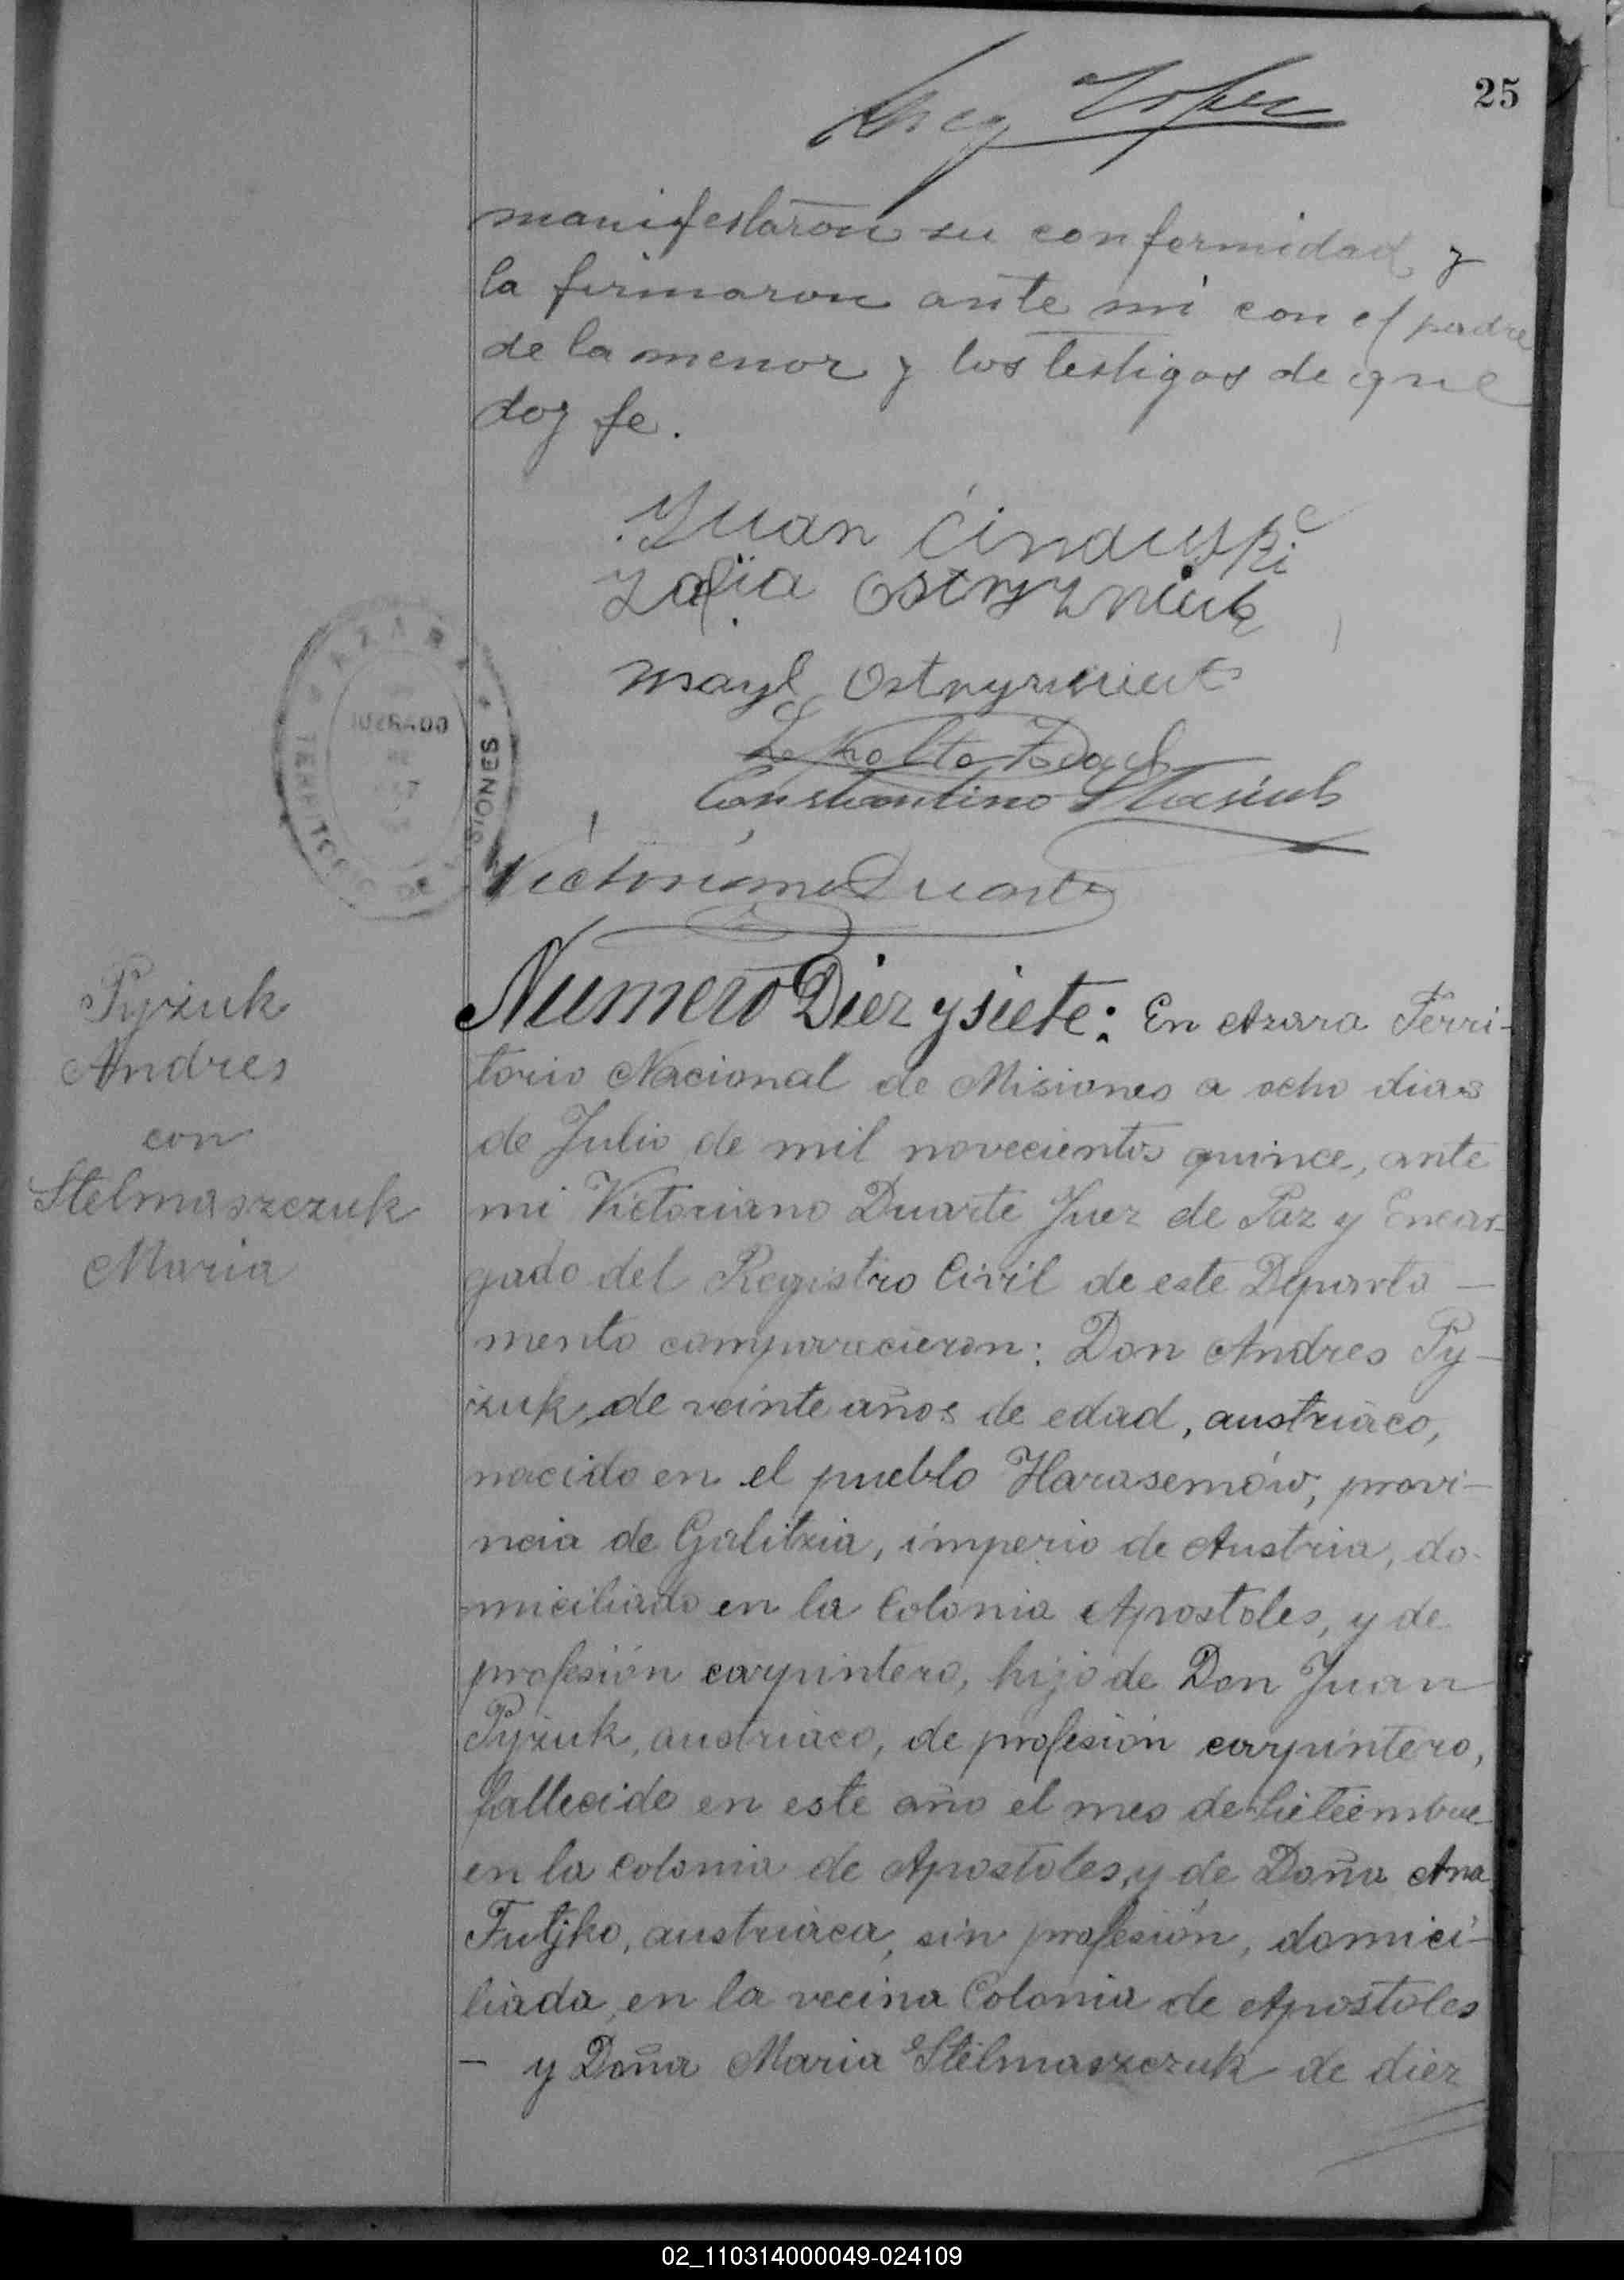 25
manifestaron su conformidad y
la firmaron ante mi con el padre
de la menor y los testigos de que
doy fe.
Juan
Zofia Ostryzniuk
Constantino Stasiuk
Victoriano Duarte
AZARA
JUZGADO
DE
TERRITORIO DE MISIONES
Pyżuk
Andres
con
Stelmaszczuk
Maria
Numero Diez y siete: En Azara Terri-
torio Nacional de Misiones a ocho dias
de Julio de mil novecientos quince, ante
mi Victoriano Duarte Juez de Paz y Encar-
gado del Registro Civil de este Departa-
mento comparecieron: Don Andres Py-
żuk, de veinte años de edad, austriaco,
nacido en el pueblo Harasemów, provi-
ncia de Galitzia, imperio de Austria, do-
miciliado en la Colonia Apostoles, y de
profesión carpintero, hijo de Don Juan
Pyżuk, austriaco, de profesión carpintero,
fallecido en este año el mes de Setiembre
en la colonia de Apostoles, y de Doña Ana
Futjko, austriaca, sin profesión, domici-
liada, en la vecina Colonia de Apostoles
- y Doña Maria Stelmaszczuk de diez
02_110314000049-024109